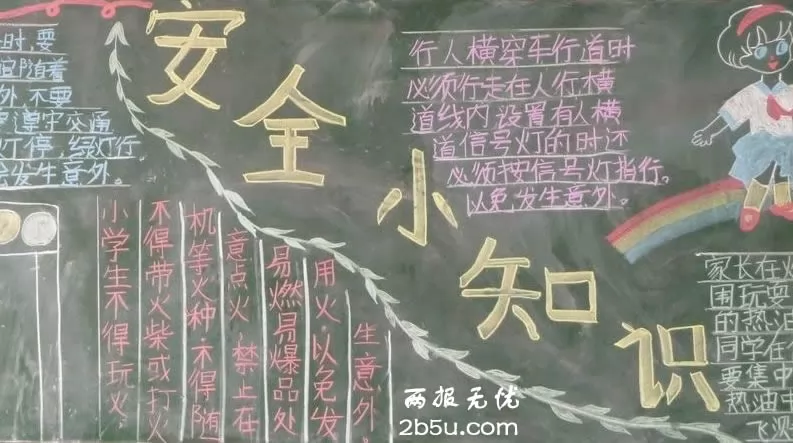 安全小知识
时,要
随着
外,不要
遵守交通
灯停,绿灯行。
发生意外。
行人横穿车行道时
必须行走在人行横
道线内,设置有人横
道信号灯的时还
必须按信号灯指行。
以免发生意外。
小学生不得玩火。
不得带火柴或打火
机等火种.不得随
意点火 禁止在
易燃易爆品处
用火.以免发
生意外。
家长在
围玩耍
的热油
同学在
要集中
热油中
飞溅
两报无忧
2b5u.com